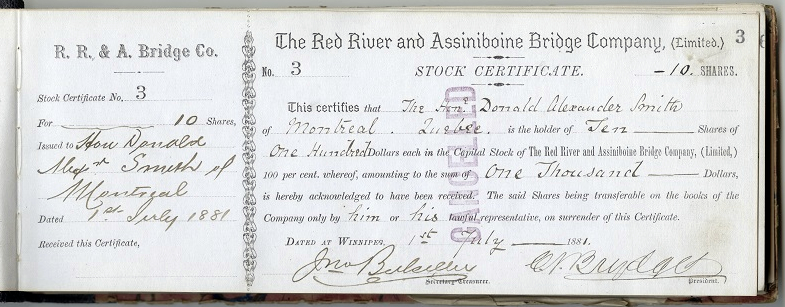 R. R. & A. Bridge Co.
Stock Certificate No. 3
For 10 Shares,
Issued to Hon Donald
Alexr Smith of
Montreal
Dated 1st July 1881
Received this Certificate,
The Red River and Assiniboine Bridge Company, (Limited.) 3
No. 3 STOCK CERTIFICATE. -10. SHARES.
This certifies that The Honl. Donald Alexander Smith
of Montreal. Quebec. is the holder of Ten Shares of
One Hundred Dollars each in the Capital Stock of The Red River and Assiniboine Bridge Company, (Limited,)
100 per cent. whereof, amounting to the sum of One Thousand Dollars,
is hereby acknowledged to have been received. The said Shares being transferable on the books of the
Company only by him or his lawful representative, on surrender of this Certificate.
DATED AT WINNIPEG, 1st July 1881.
Jno
Secretary-Treasurer. President.
CANCELLED